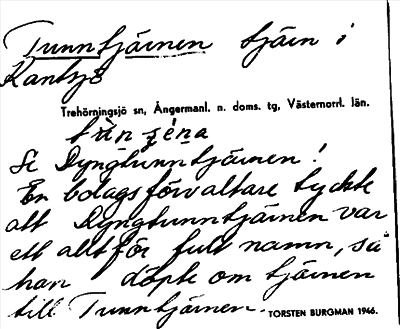 Tunntjäinen tjäin i
Kantsjö
Trehörningsjö sn, Ångermanl. n. doms. tg, Västernorrl. län.
Se Dyngtunntjäinen!
En bolagsförvaltare tyckte
att Dyngtunntjäinen var
ett alltför fult namn, så
han döpte om tjäinen
till Tunntjäinen.
TORSTEN BURGMAN 1946.